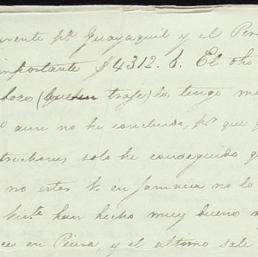 mente pª Guayaquil y el Per
importante $4312.6. El oho
(buen traje) lo tengo me
aun no he concluido, pr que q
solo he conseguido q
no estar
en Jamaica no lo
han hecho muy bueno n
en Piura, y el ultimo sale